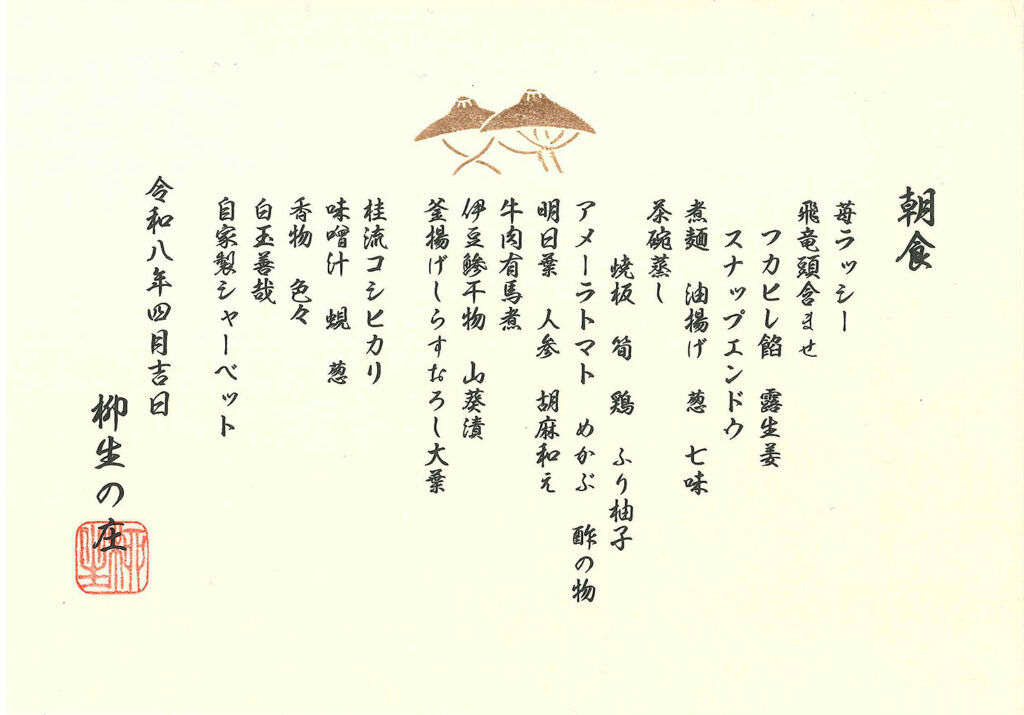 朝食
苺ラッシー
飛竜頭含ませ
フカヒレ餡　露生姜
スナップエンドウ
煮麺　油揚げ　葱　七味
茶碗蒸し
焼板　筍　鶏　ふり柚子
アメーラトマト　めかぶ　酢の物
明日葉　人参　胡麻和え
牛肉有馬煮
伊豆鯵干物　山葵漬
釜揚げしらすおろし大葉
桂流コシヒカリ
味噌汁　蜆　葱
香物　色々
白玉善哉
自家製シャーベット
令和八年四月吉日
柳生の庄
柳生